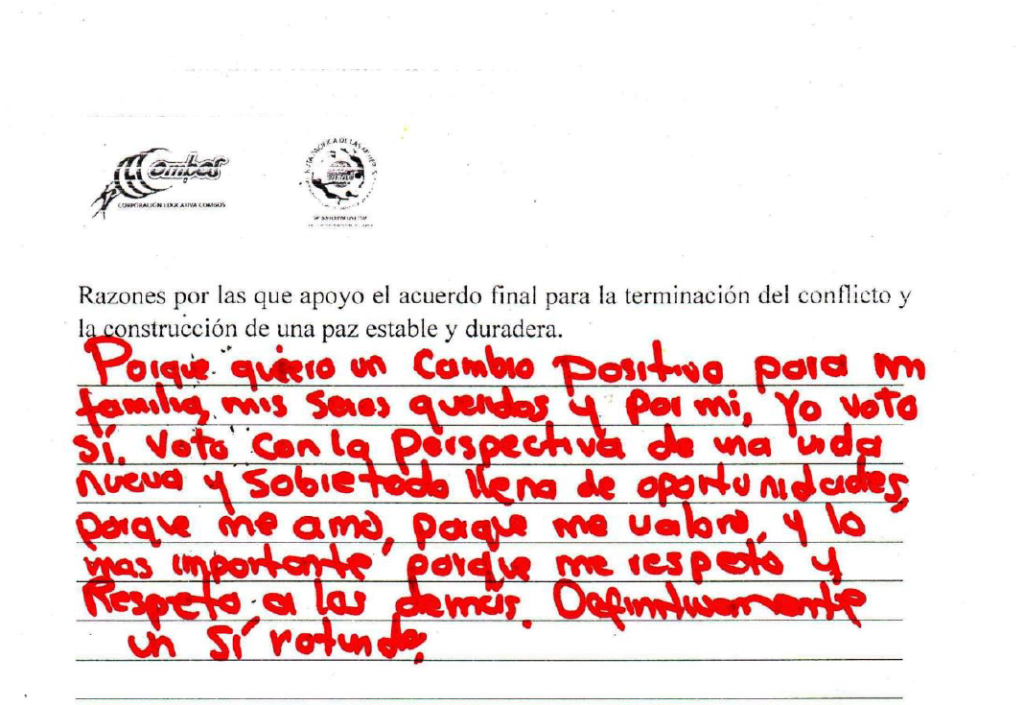 Combos
CORPORACIÓN EDUCATIVA COMBOS
RUTA PACIFICA DE LAS MUJERES
Razones por las que apoyo el acuerdo final para la terminación del conflicto y
la construcción de una paz estable y duradera.
Porque quiero un Cambio Positivo para mi
familia, mis seres queridos y por mi, Yo voto
sí. Voto con la perspectiva de una vida
nueva y sobre todo llena de oportunidades,
porque me amo, porque me valoro, y lo
mas importante porque me respeto y
Respeto a las demás. Definitivamente
un sí rotundo.